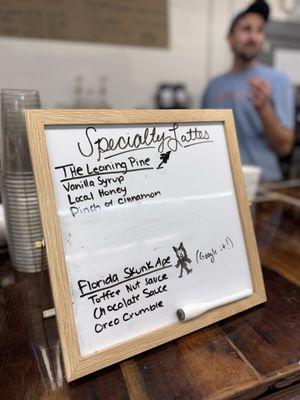 Specialty Lattes
The Leaning Pine
Vanilla Syrup
Local Honey
Pinch of cinnamon
Florida Skunk Ape
(Google it!)
Toffee Nut sauce
Chocolate Sauce
Oreo Crumble